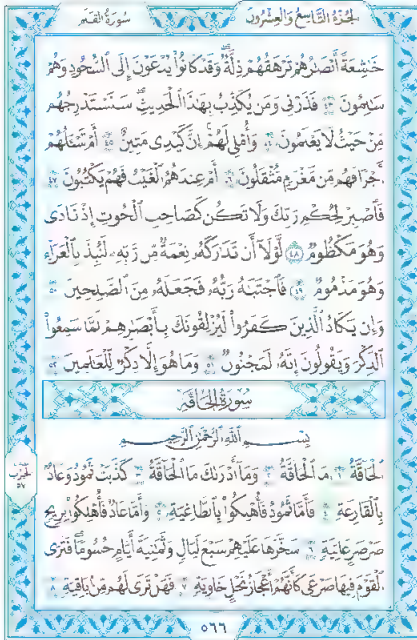 الجزء التاسع والعشرون
سورة القلم
خَٰشِعَةً أَبْصَٰرُهُمْ تَرْهَقُهُمْ ذِلَّةٌ وَقَدْ كَانُوا۟ يُدْعَوْنَ إِلَى ٱلسُّجُودِ وَهُمْ
سَٰلِمُونَ ٤٣ فَذَرْنِى وَمَن يُكَذِّبُ بِهَٰذَا ٱلْحَدِيثِ سَنَسْتَدْرِجُهُم
مِّنْ حَيْثُ لَا يَعْلَمُونَ ٤٤ وَأُمْلِى لَهُمْ إِنَّ كَيْدِى مَتِينٌ ٤٥ أَمْ تَسْـَٔلُهُمْ
أَجْرًا فَهُم مِّن مَّغْرَمٍ مُّثْقَلُونَ ٤٦ أَمْ عِندَهُمُ ٱلْغَيْبُ فَهُمْ يَكْتُبُونَ ٤٧
فَٱصْبِرْ لِحُكْمِ رَبِّكَ وَلَا تَكُن كَصَاحِبِ ٱلْحُوتِ إِذْ نَادَىٰ
وَهُوَ مَكْظُومٌ ٤٨ لَّوْلَآ أَن تَدَٰرَكَهُۥ نِعْمَةٌ مِّن رَّبِّهِۦ لَنُبِذَ بِٱلْعَرَآءِ
وَهُوَ مَذْمُومٌ ٤٩ فَٱجْتَبَٰهُ رَبُّهُۥ فَجَعَلَهُۥ مِنَ ٱلصَّٰلِحِينَ ٥٠
وَإِن يَكَادُ ٱلَّذِينَ كَفَرُوا۟ لَيُزْلِقُونَكَ بِأَبْصَٰرِهِمْ لَمَّا سَمِعُوا۟
ٱلذِّكْرَ وَيَقُولُونَ إِنَّهُۥ لَمَجْنُونٌ ٥١ وَمَا هُوَ إِلَّا ذِكْرٌ لِّلْعَٰلَمِينَ ٥٢
سورة الحاقة
بِسْمِ ٱللَّهِ ٱلرَّحْمَٰنِ ٱلرَّحِيمِ
ٱلْحَآقَّةُ ١ مَا ٱلْحَآقَّةُ ٢ وَمَآ أَدْرَىٰكَ مَا ٱلْحَآقَّةُ ٣ كَذَّبَتْ ثَمُودُ وَعَادٌۢ
بِٱلْقَارِعَةِ ٤ فَأَمَّا ثَمُودُ فَأُهْلِكُوا۟ بِٱلطَّاغِيَةِ ٥ وَأَمَّا عَادٌ فَأُهْلِكُوا۟ بِرِيحٍ
صَرْصَرٍ عَاتِيَةٍ ٦ سَخَّرَهَا عَلَيْهِمْ سَبْعَ لَيَالٍ وَثَمَٰنِيَةَ أَيَّامٍ حُسُومًا فَتَرَى
ٱلْقَوْمَ فِيهَا صَرْعَىٰ كَأَنَّهُمْ أَعْجَازُ نَخْلٍ خَاوِيَةٍ ٧ فَهَلْ تَرَىٰ لَهُم مِّنۢ بَاقِيَةٍ ٨
الحزب
٥٧
٥٦٦